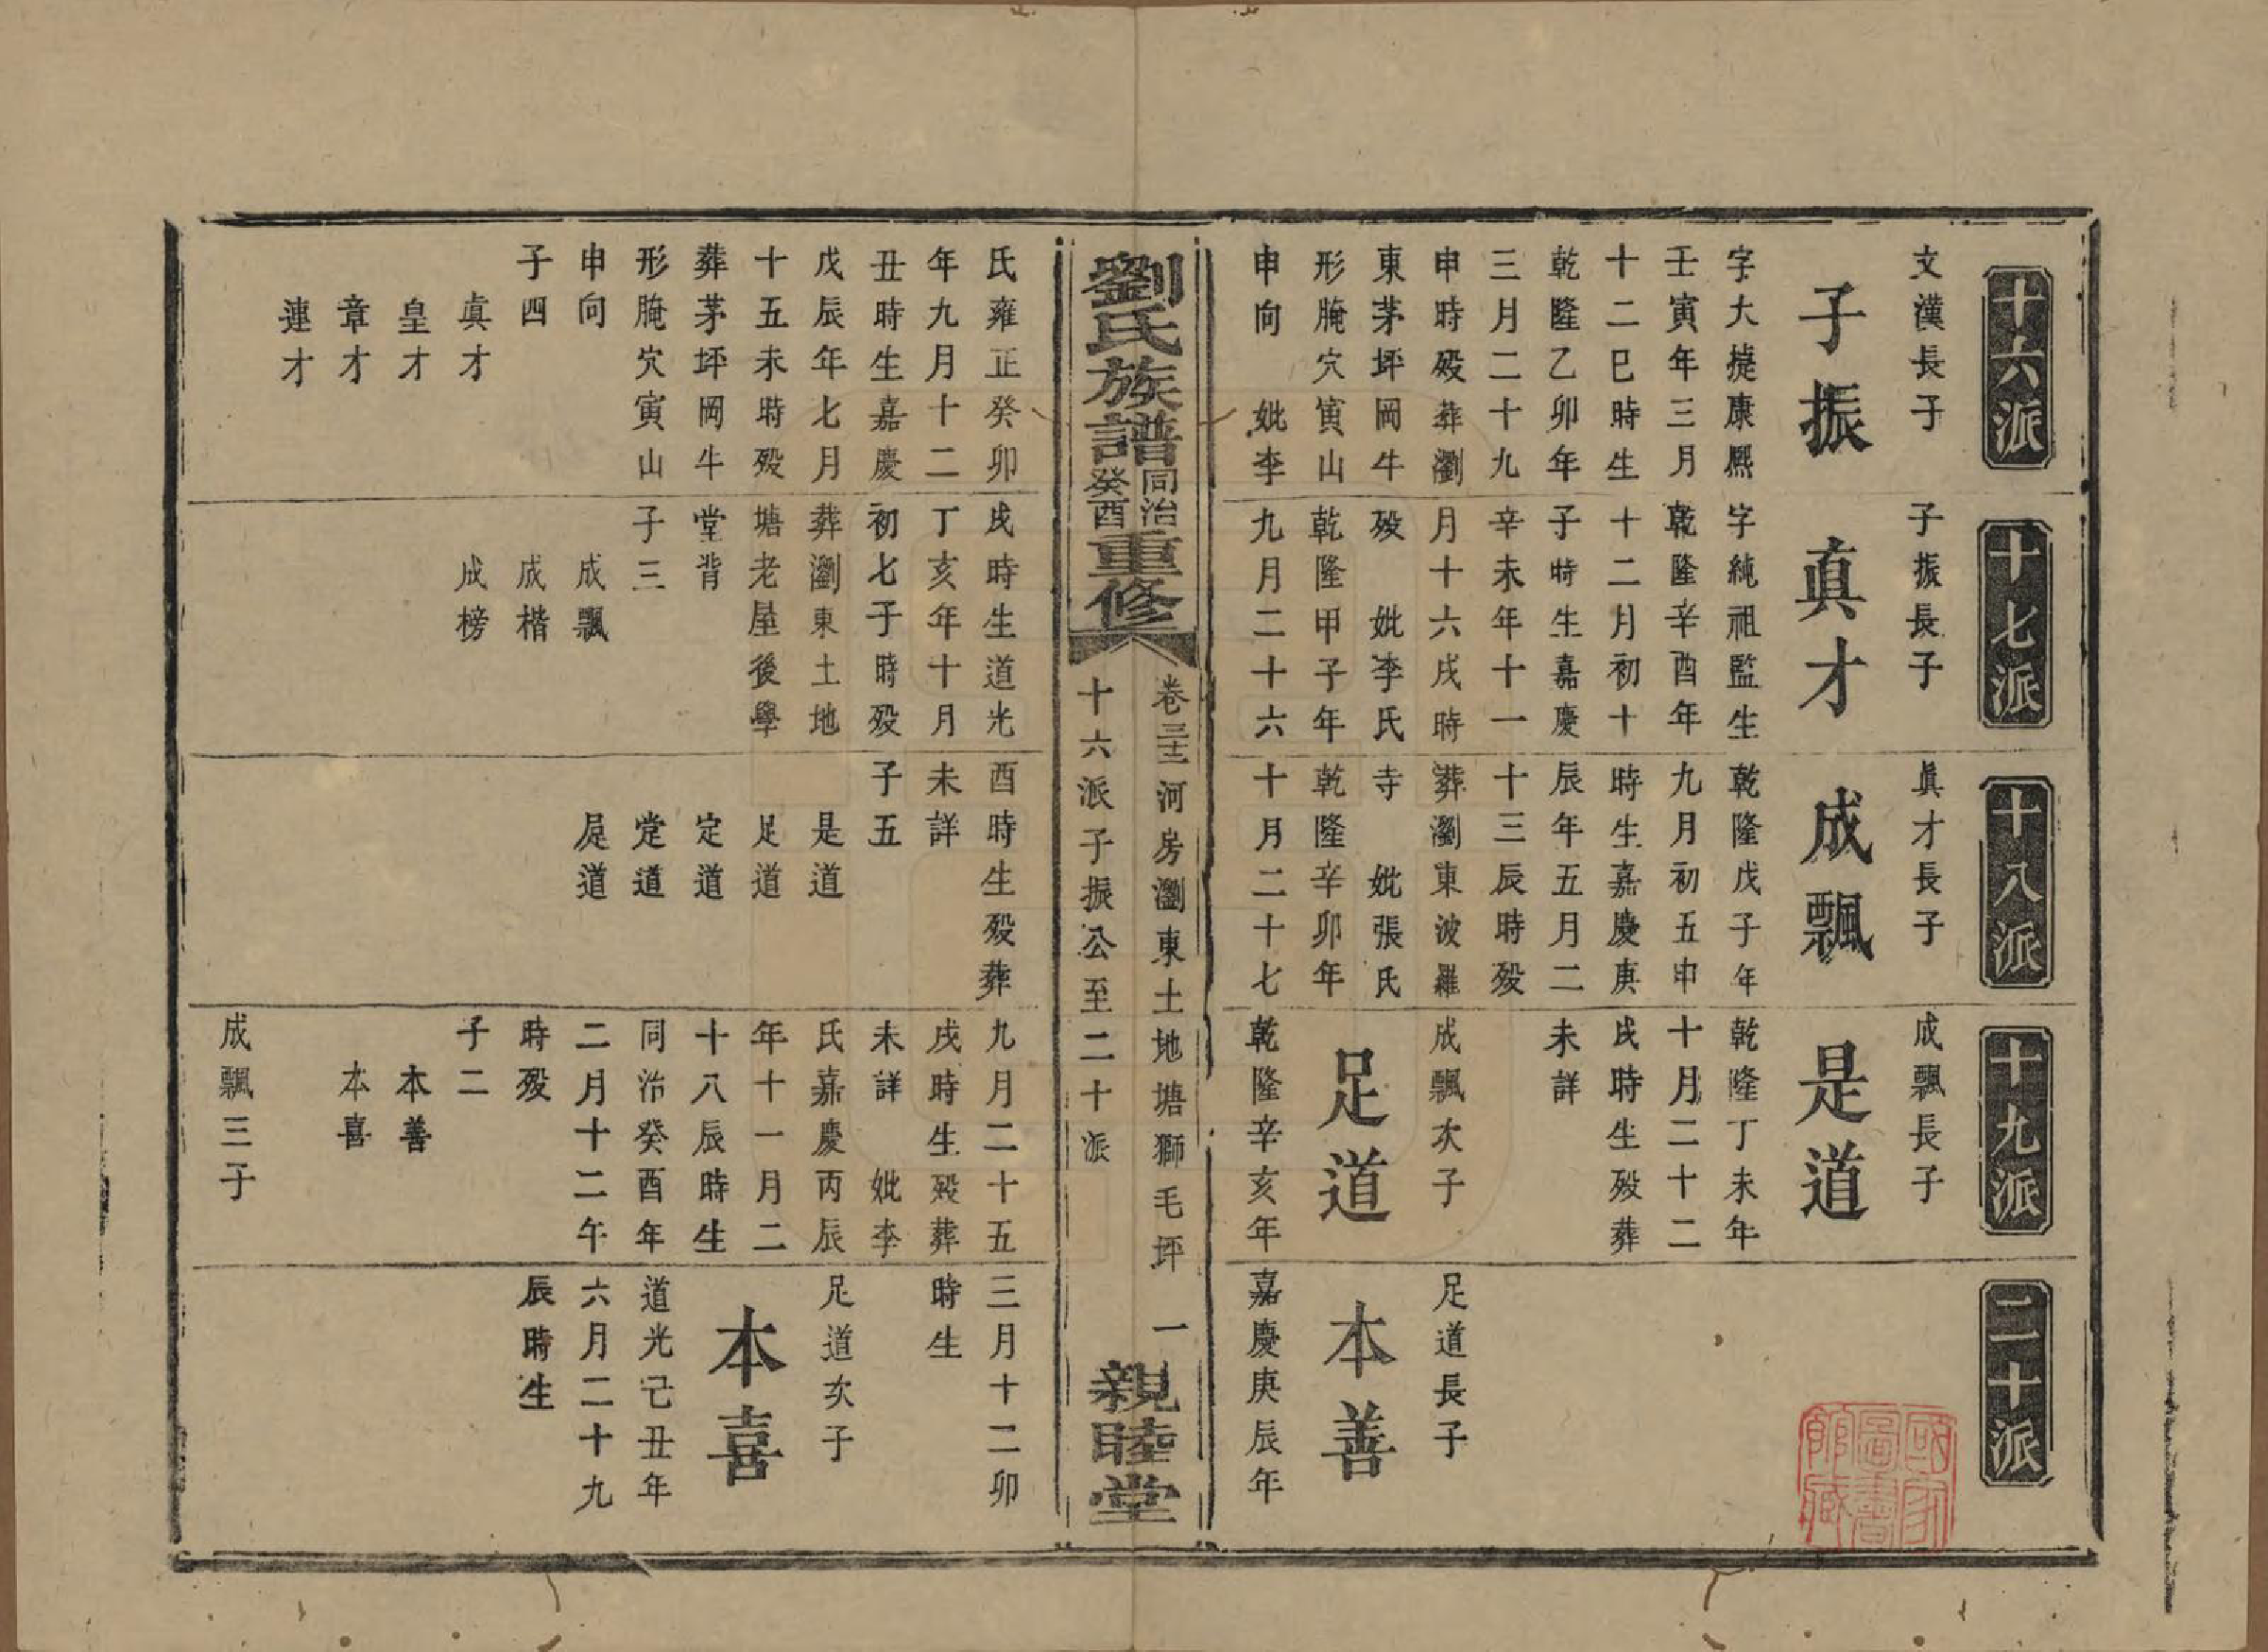 十六派
文漢長子
子振
字大㨗康熙
壬寅年三月
十二巳時生
乾隆乙卯年
三月二十九
申時殁葬瀏
東茅坪岡牛
形腌穴寅山
申向　妣李
氏雍正癸卯
年九月十二
丑時生嘉慶
戊辰年七月
十五未時殁
葬茅坪岡牛
形腌穴寅山
申向
子四
真才
皇才
章才
連才
十七派
子振長子
真才
字純祖監生
乾隆辛酉年
十二月初十
子時生嘉慶
辛未年十一
月十六戌時
殁　妣李氏
乾隆甲子年
九月二十六
戌時生道光
丁亥年十月
初七子時殁
葬瀏東土地
塘老屋後學
堂背
子三
成飄
成楷
成榜
十八派
真才長子
成飄
乾隆戊子年
九月初五申
時生嘉慶庚
辰年五月二
十三辰時殁
葬瀏東波羅
寺　妣張氏
乾隆辛卯年
十月二十七
酉時生殁葬
未詳
子五
是道
足道
定道
定道
是道
十九派
成飄長子
是道
乾隆丁未年
十月二十二
戌時生殁葬
未詳
成飄次子
足道
乾隆辛亥年
九月二十五
戌時生殁葬
未詳　妣李
氏嘉慶丙辰
年十一月二
十八辰時生
同治癸酉年
二月十二午
時殁
子二
本善
本喜
成飄三子
二十派
足道長子
本善
嘉慶庚辰年
三月十二卯
時生
足道次子
本喜
道光己丑年
六月二十九
辰時生
劉氏族譜同治癸酉重修
卷三十二河房瀏東土地塘獅毛坪　一
十六派子振公至二十派
親睦堂
國家圖書館藏